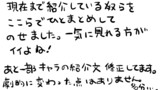 現在まで紹介している奴らを
ここらでひとまとめして
のせました。一気に見れる方が
イイよね！
あと一部キャラの紹介文 修正してます。
劇的に変わった点はありません。